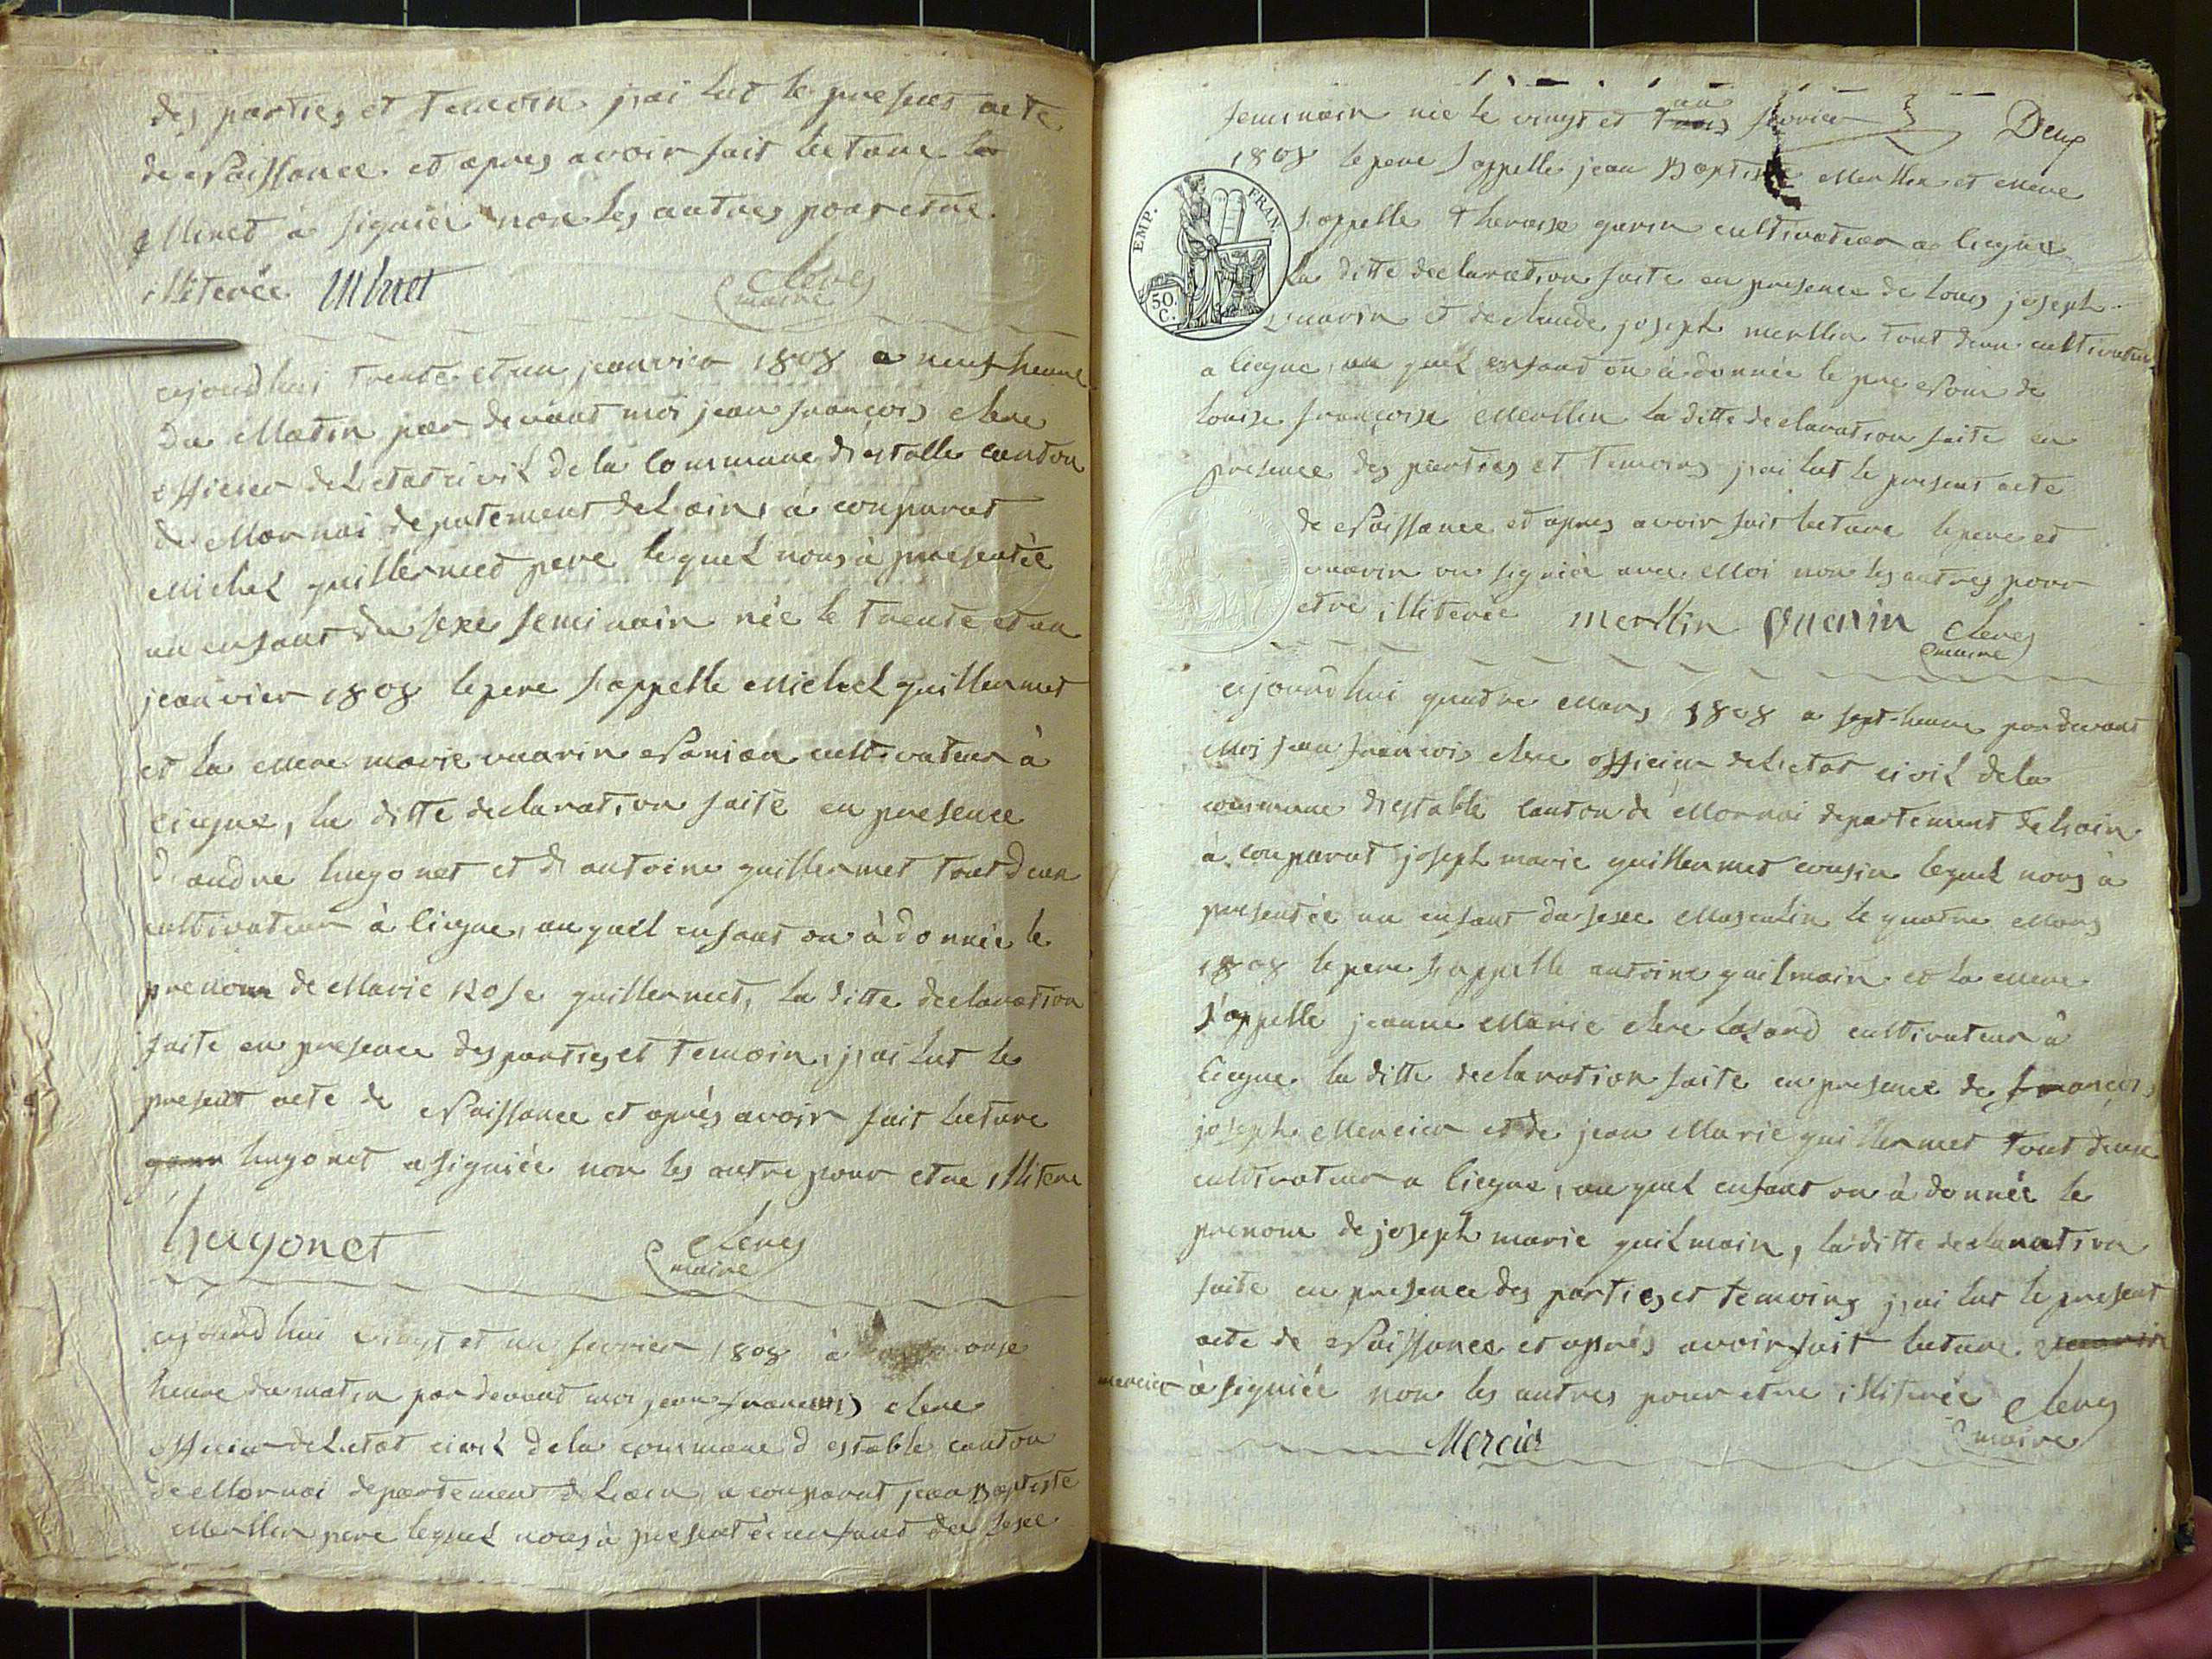 des parties et temoin j'ai lut le present acte
de Naissance et apres avoir fait lecture le
Minet à signiéé non les autres pour etre
illiterée Minet Clerc
maire
ajourdhui trente et un jeanvier 1808 a neuf heure
du Matin par devant moi jean françois clerc
officier de l'etat civil de la Commune d'estable canton
de Mornai depatement de L'ain, à comparut
Michel guillermet pere lequel nous à presentée
un enfant du sexe feminain née le trente et un
jeanvier 1808 le pere s'appelle Michel guillermet
et la mere marie vuarin cultivateur à
Ciegne, la ditte declaration faite en presence
d'andre hugonet et d'antoine guillermet tout deux
cultivateur à Ciegne, auquel enfant on à donnée le
prenom de Marie Rose guillermet, la ditte declaration
faite en presence des parties et temoin, j'ai lut le
present acte de Naissance et aprés avoir fait lecture
hugonet a signiée non les autre pour etre illitere
hugonet Clerc
maire
ajourdhui vingt et un fevrier 1808 à onse
heure du matin par devant moi jean francois clerc
officier de L'etat civil de la commune d'estable canton
de Mornai departement de L'ain, a comparut jean Baptiste
Merllin pere lequel nous à presentée enfant du sexe
feminain née le vingt et un fevrier Deux
1808 le pere s'appelle jean Baptiste Merllin et mere
EMP. FRAN.
50. C.
s'appelle Theraise gurin cultivateur a Ciegne
La ditte declaration faite en presence de Louis joseph
vuarin et de claude joseph merllin tout deux cultivateur
a Ciegne, au quel enfant on à donnée le prenom de
Louise françoise Merllin la ditte declaration faite en
presence des parties et temoins j'ai lut le present acte
de Naissance et apres avoir fait lecture le pere et
vuarin on signiée avec Moi non les autres pour
etre illiterée merllin vuarin Clerc
maire
ajourdhui quatre Mars 1808 a sept heure par devant
Moi jean francois clerc officier de L'etat civil de la
commune d'estable Canton de Mornai departement de L'ain
à comparut joseph marie guillermet cousin lequel nous à
presentée un enfant du sexe Masculin le quatre Mars
1808 le pere s'appelle antoine guilmain et la mere
s'appelle jeanne Marie clerc cultivateur à
Ciegne la ditte declaration faite en presence de françois
joseph Mercier et de jean Marie guillermet tout deux
cultivateur a Ciegne, au quel enfant on à donnée le
prenom de joseph marie guilmain, la ditte declaration
faite en presence des parties et temoins j'ai lut le present
acte de Naissance et aprés avoir fait lecture vuarin
mercier à signiée non les autres pour etre illiterée Clerc
Mercier maire